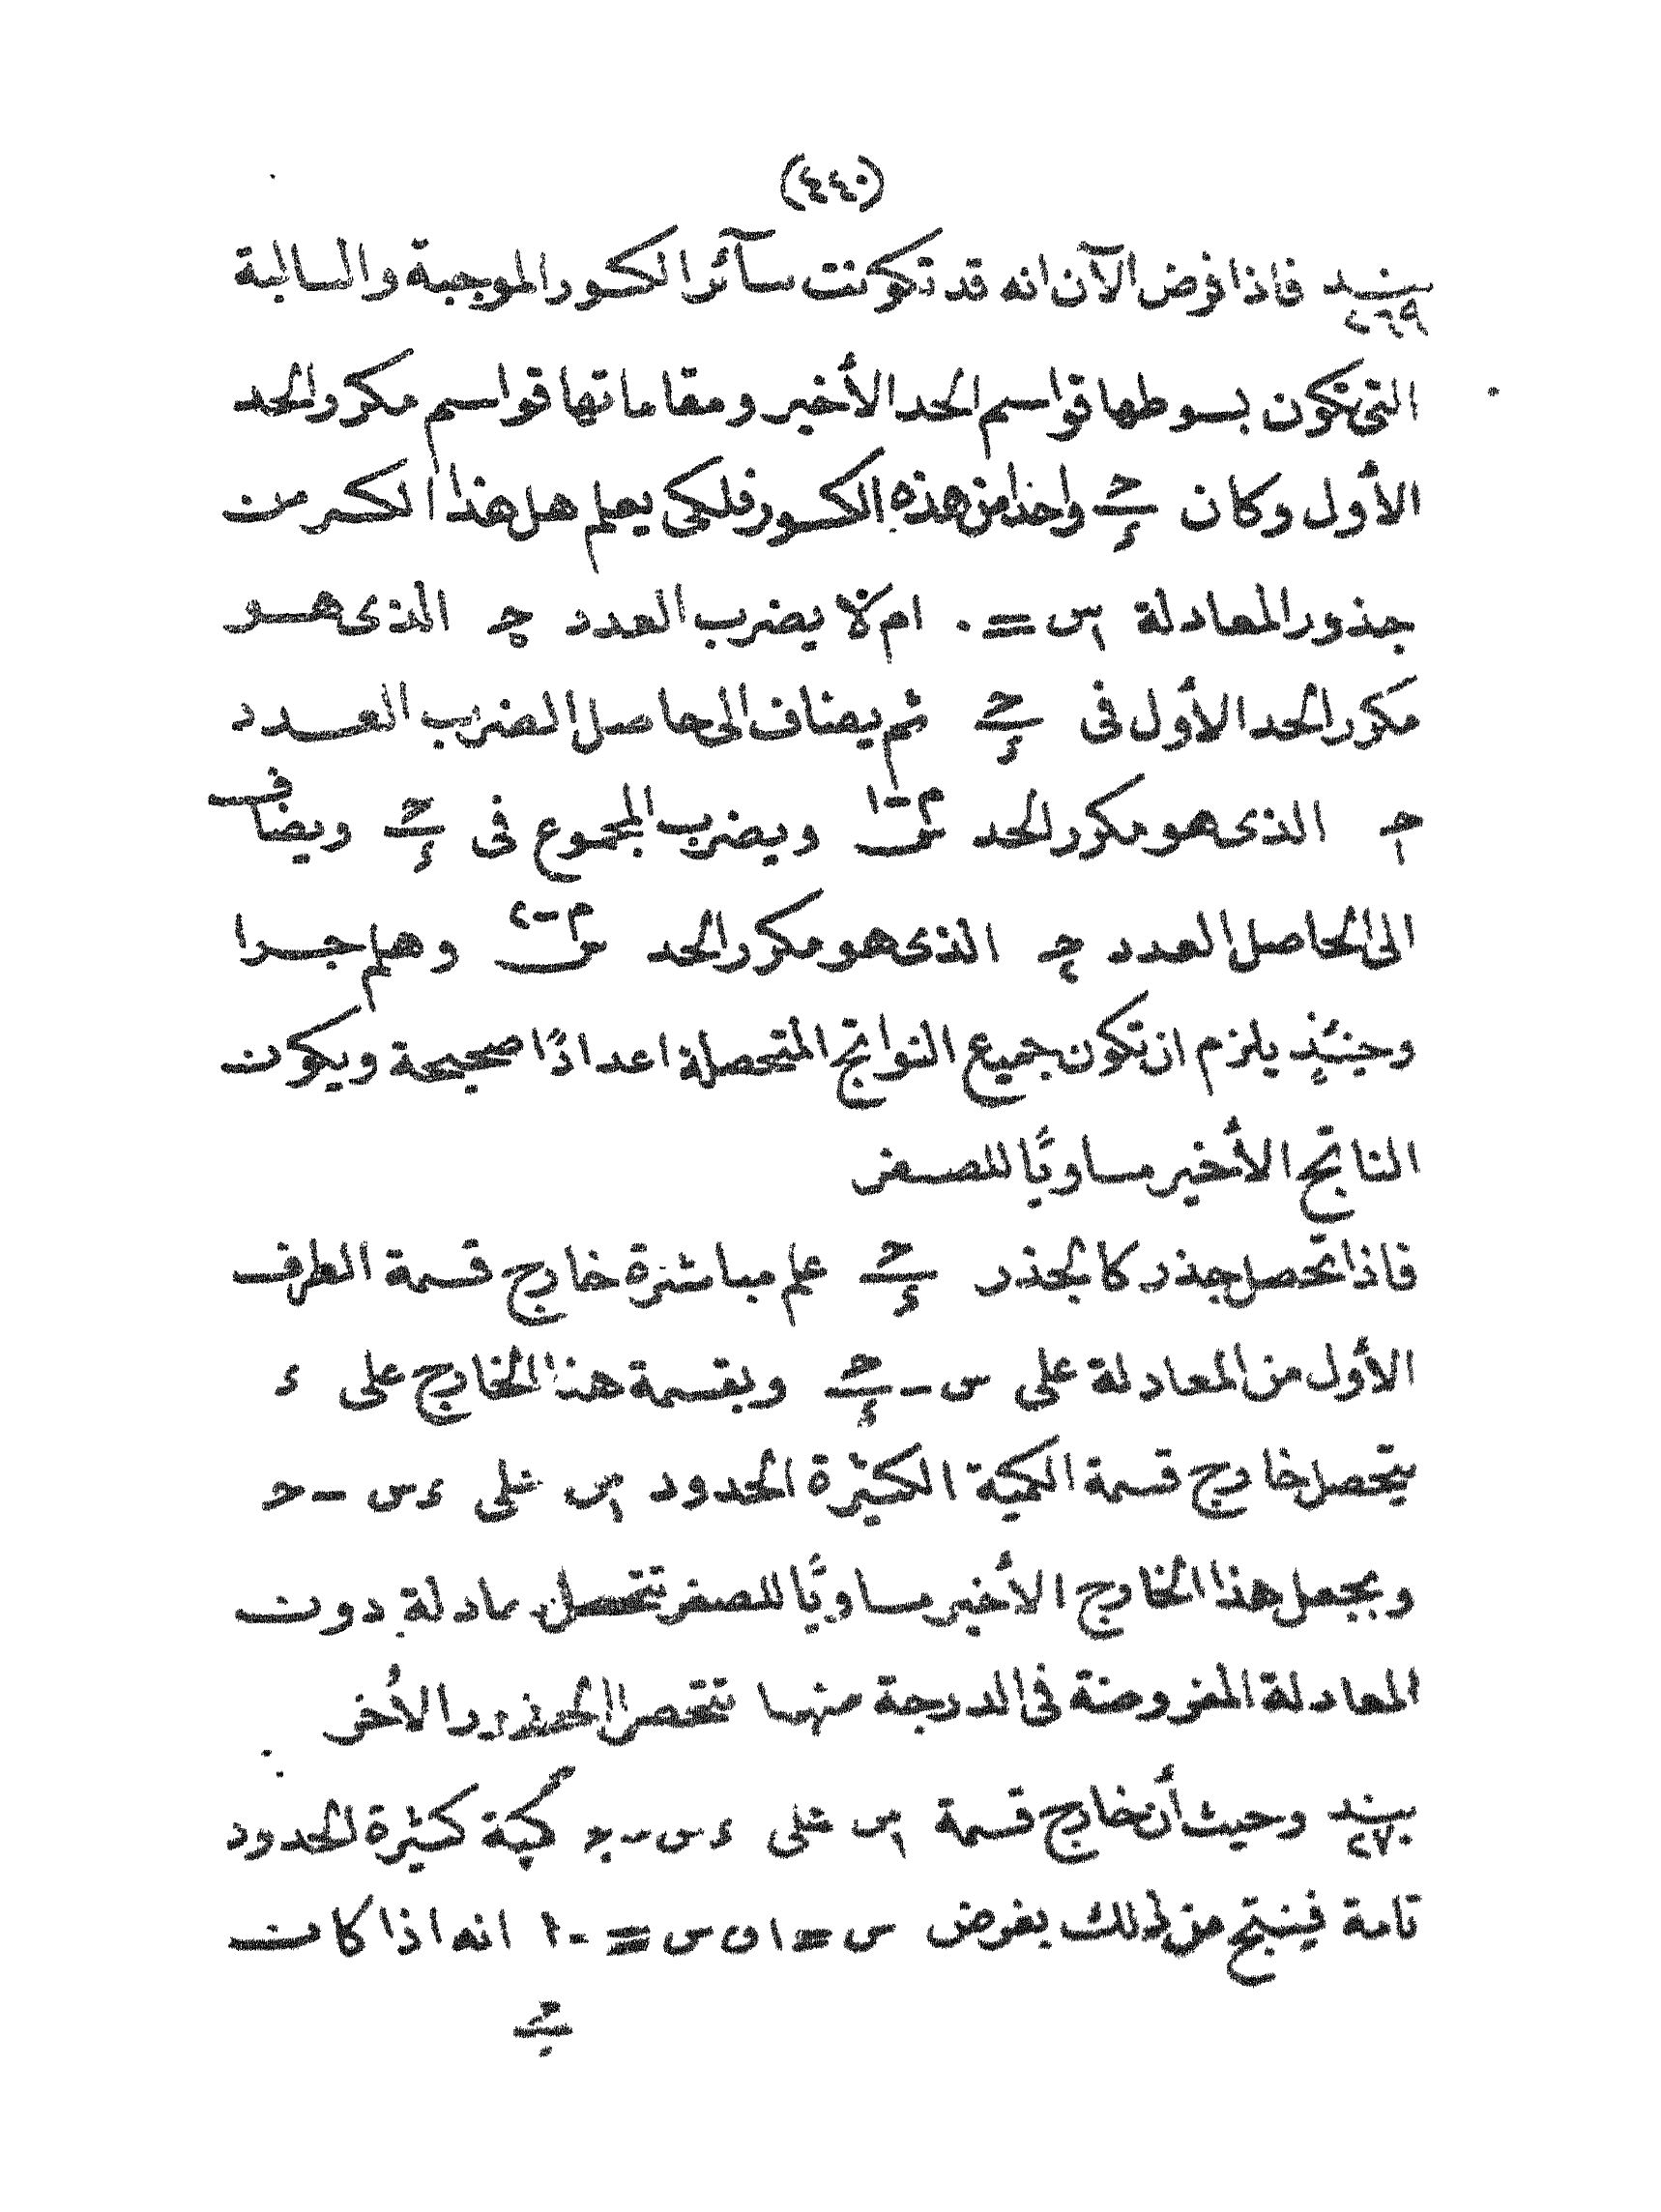 (٤٤٠)
بند ٢٦٩ فاذا فرض الآن انه قد تكونت سآئر الكسور الموجبة والسالبة
التى تكون بسوطها قواسم الحد الأخير ومقاماتها قواسم مكرر الحد
الأول وكان حـ/ء واحدا من هذه الكسور فلكى يعلم هل هذا الكسر من
جذور المعادلة س١ = ٠ ام لا يضرب العدد حـ٠ الذى هو
مكرر الحد الأول فى حـ/ء ثم يضاف الى حاصل الضرب العدد
حـ١ الذى هو مكرر الحد س^م-١ ويضرب المجموع فى حـ/ء ويضاف
الى الحاصل العدد حـ٢ الذى هو مكرر الحد س^م-٢ وهلم جرا
وحينئذ يلزم ان تكون جميع النواتج المتحصلة اعدادًا صحيحة ويكون
الناتج الأخير مساويًا للصفر
فاذا تحصل جذر كالجذر حـ/ء علم مباشرة خارج قسمة الطرف
الأول من المعادلة على س - حـ/ء وبقسمة هذا الخارج على ء
يتحصل خارج قسمة الكمية الكثيرة الحدود س١ على ءس - حـ
وبجعل هذا الخارج الأخير مساويًا للصفر تتحصل معادلة دون
المعادلة المفروضة فى الدرجة منها تتحصل الجذور الأخر
بند ٢٧٠ وحيث أن خارج قسمة س١ على ءس - حـ كمية كثيرة الحدود
تامة فينتج من ذلك بفرض س = ١ و س = -١ انه اذا كان
حـ/ء